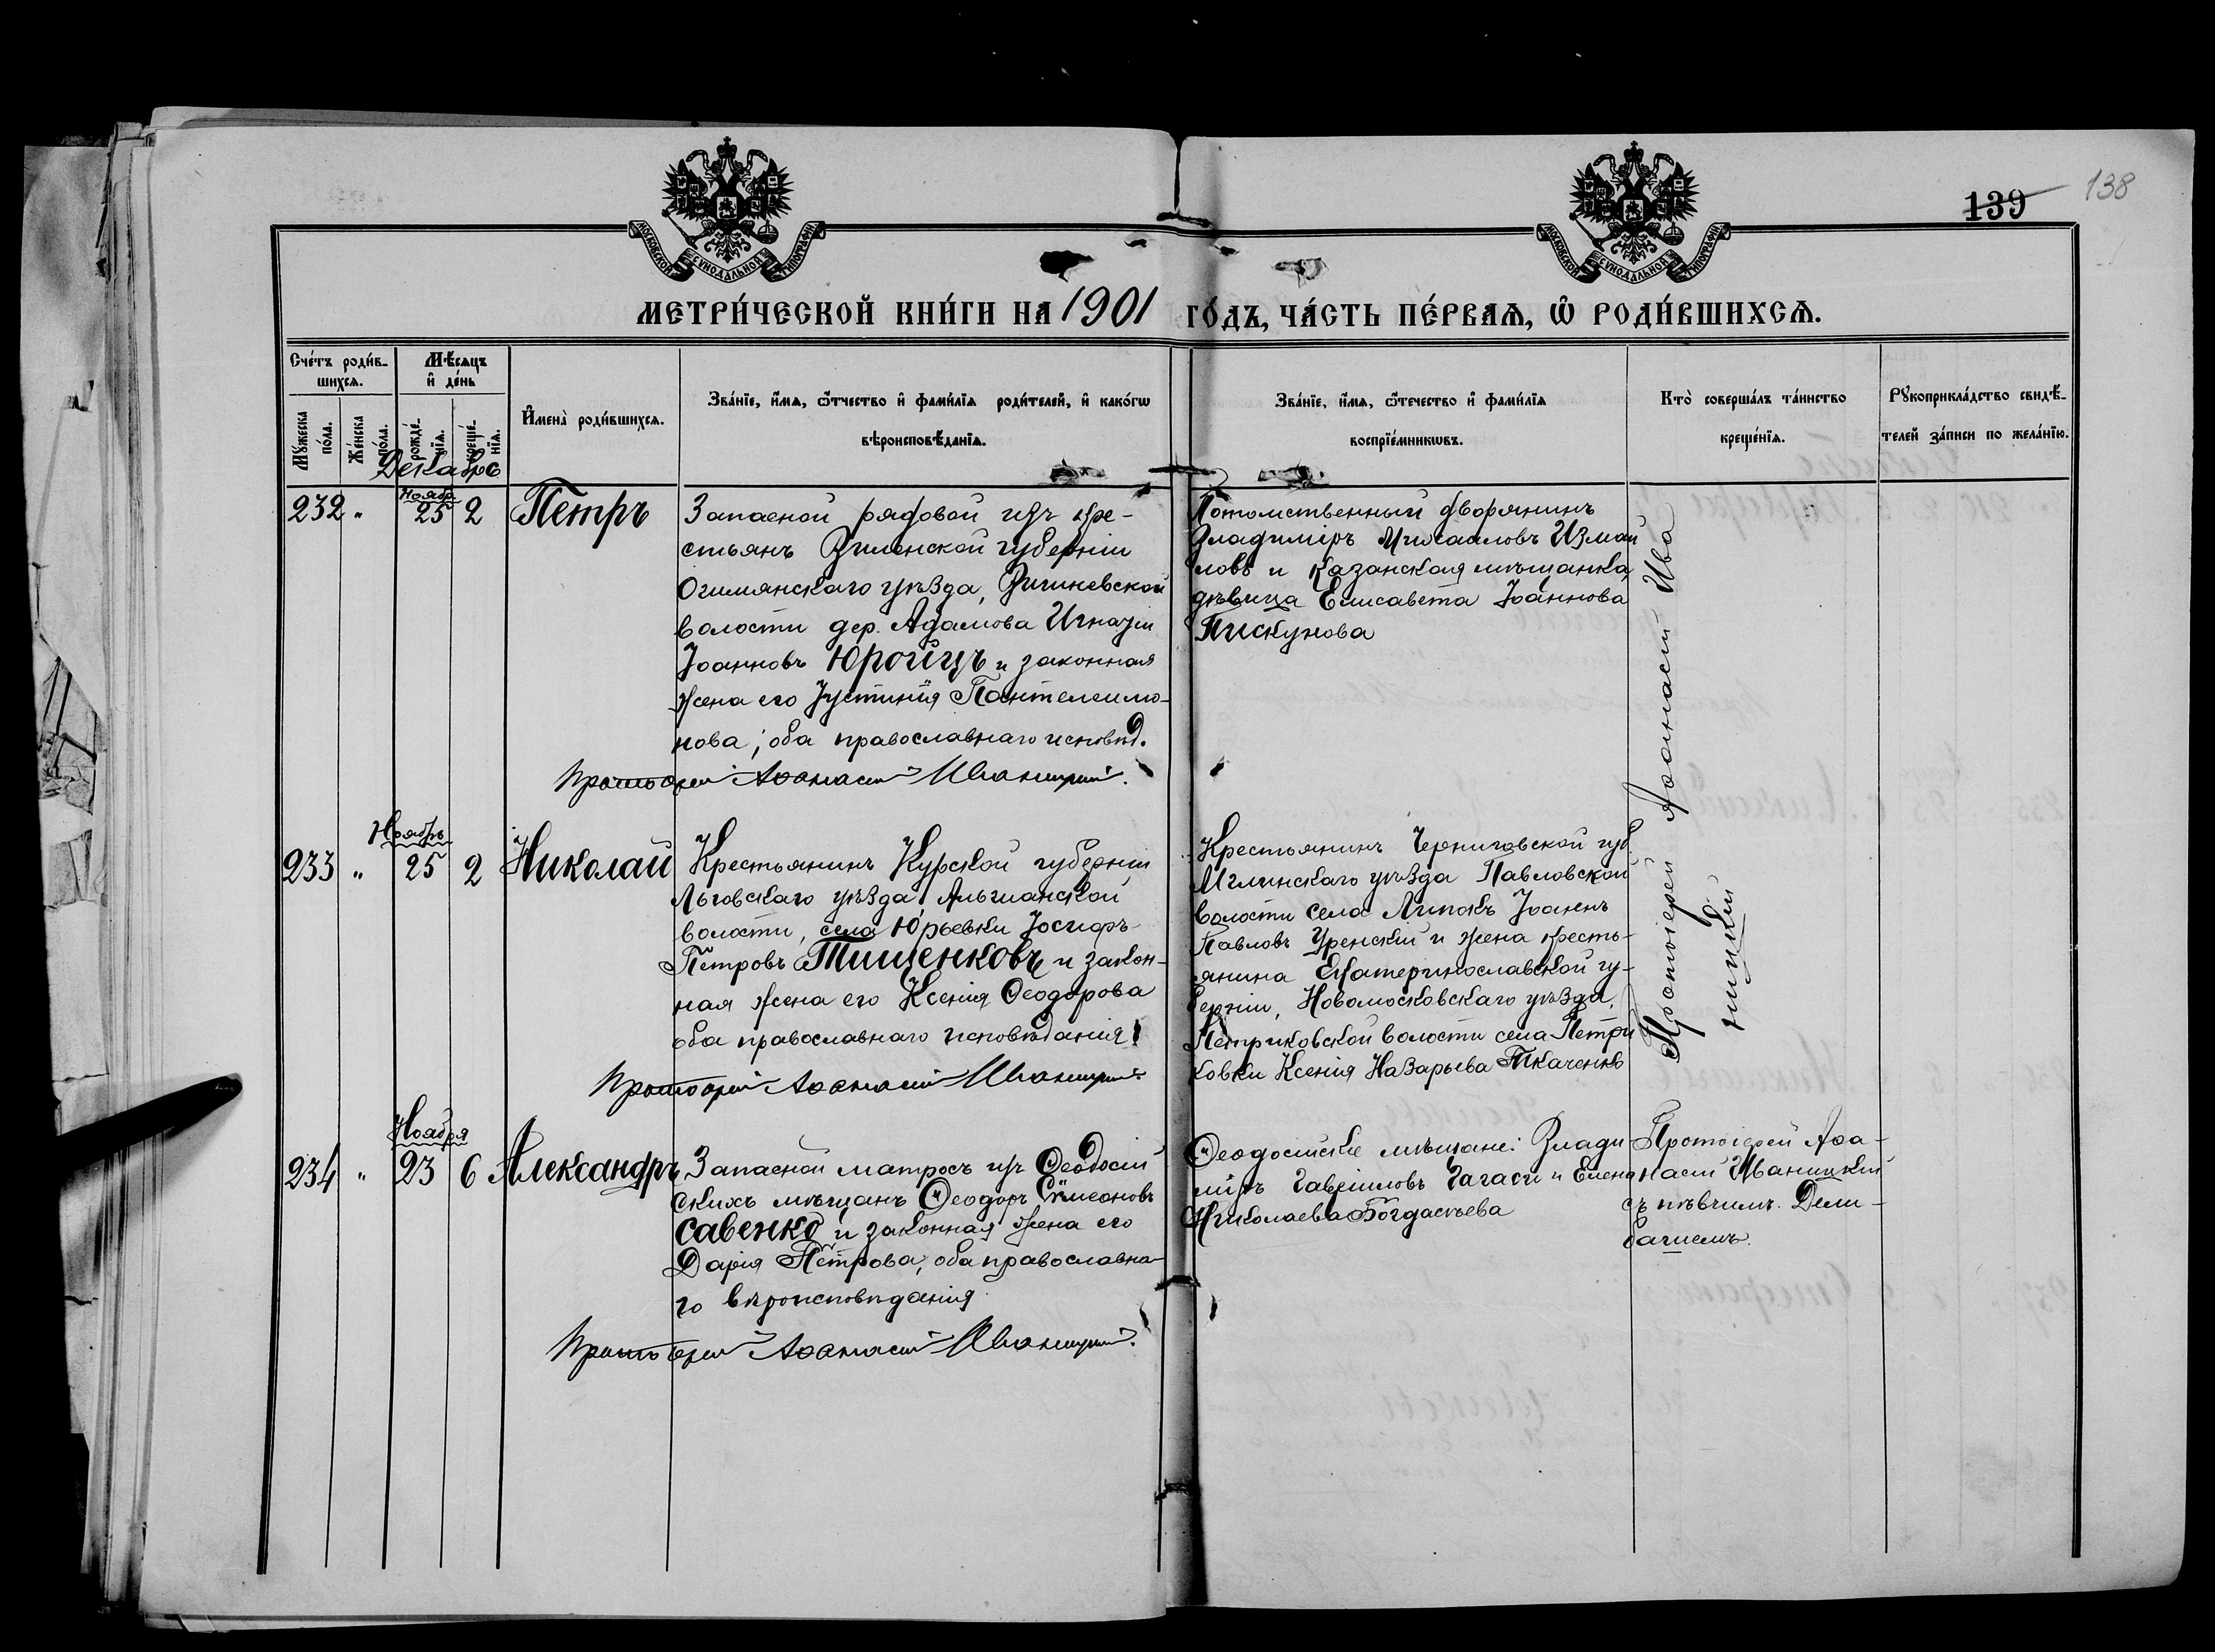 139 138
МОСКОВСКОЙ СУНОДАЛЬНОЙ ТИПОГРАФІИ
МОСКОВСКОЙ СУНОДАЛЬНОЙ ТИПОГРАФІИ
МЕТРИ́ЧЕСКОЙ КНИ́ГИ НА 1901 ГО́ДЪ, ЧА́СТЬ ПЕ́РВАѦ, Ѡ҆ РОДИ́ВШИХСѦ.
Сче́тъ роди́в-
шихсѧ.
Мѣ́сѧцъ
и҆ де́нь
Мꙋ́жеска
по́ла.
Же́нска
по́ла.
рожде́-
нїѧ.
креще́-
нїѧ.
И҆мена̀ роди́вшихсѧ.
Зва́нїе, и҆́мѧ, ѻ҆́тчество и҆ фами́лїѧ роди́телей, и҆ како́гѡ
вѣроисповѣ́данїѧ.
Зва́нїе, и҆́мѧ, ѻ҆́течество и҆ фами́лїѧ
воспрїе́мникѡвъ.
Кто̀ соверша́лъ та́инство
креще́нїѧ.
Рꙋкоприкла́дство свидѣ́-
телей за́писи по жела́нїю.
Декабрь
232 "
Ноябр.
25 2
Петръ
Запасной рядовой изъ кре-
стьянъ Виленской губерніи
Ошмянскаго уѣзда, Вишневской
волости дер. Адамова Игнатій
Іоанновъ Юройць и законная
жена его Іустинія Пантелеимо-
нова; оба православнаго исповѣд.
Протоіерей Аѳанасій Иваницкій.
Потомственный дворянинъ
Владиміръ Михаиловъ Измай
ловъ и Казанская мѣщанка,
дѣвица Елисавета Іоаннова
Пискунова
Протоіерей Аѳанасій Ива
ницкій
Ноябрь
233 " 25 2
Николай
Крестьянинъ Курской губерніи
Льговскаго уѣзда
волости, села Юрьевки Іосифъ
Петровъ Тищенковъ и закон-
ная жена его Ксенія Ѳеодорова
оба православнаго исповѣданія
Протоіерей Аѳанасій Иваницкій.
Крестьянинъ Черниговской губ.
Мглинскаго уѣзда Павловской
волости села Липокъ Іоаннъ
Павловъ Уренскій и жена кресть-
янина Екатеринославской гу-
берніи, Новомосковскаго уѣзда,
Петриковской волости села Петри
ковки Ксенія Назарьева Ткаченко
Ноября
234 " 23 6
Александръ
Запасной матросъ изъ Ѳеодосій
скихъ мѣщанъ Ѳеодоръ Симеоновъ
Савенко и законная жена его
Дарія Петрова, оба православна-
го вѣроисповѣданія
Протоіерей Аѳанасій Иваницкій.
Ѳеодосійскіе мѣщане: Влади
міръ Гавріиловъ и Елена
Николаева
Протоіерей Аѳа-
насій Иваницкій
съ пѣвчимъ. Дели-